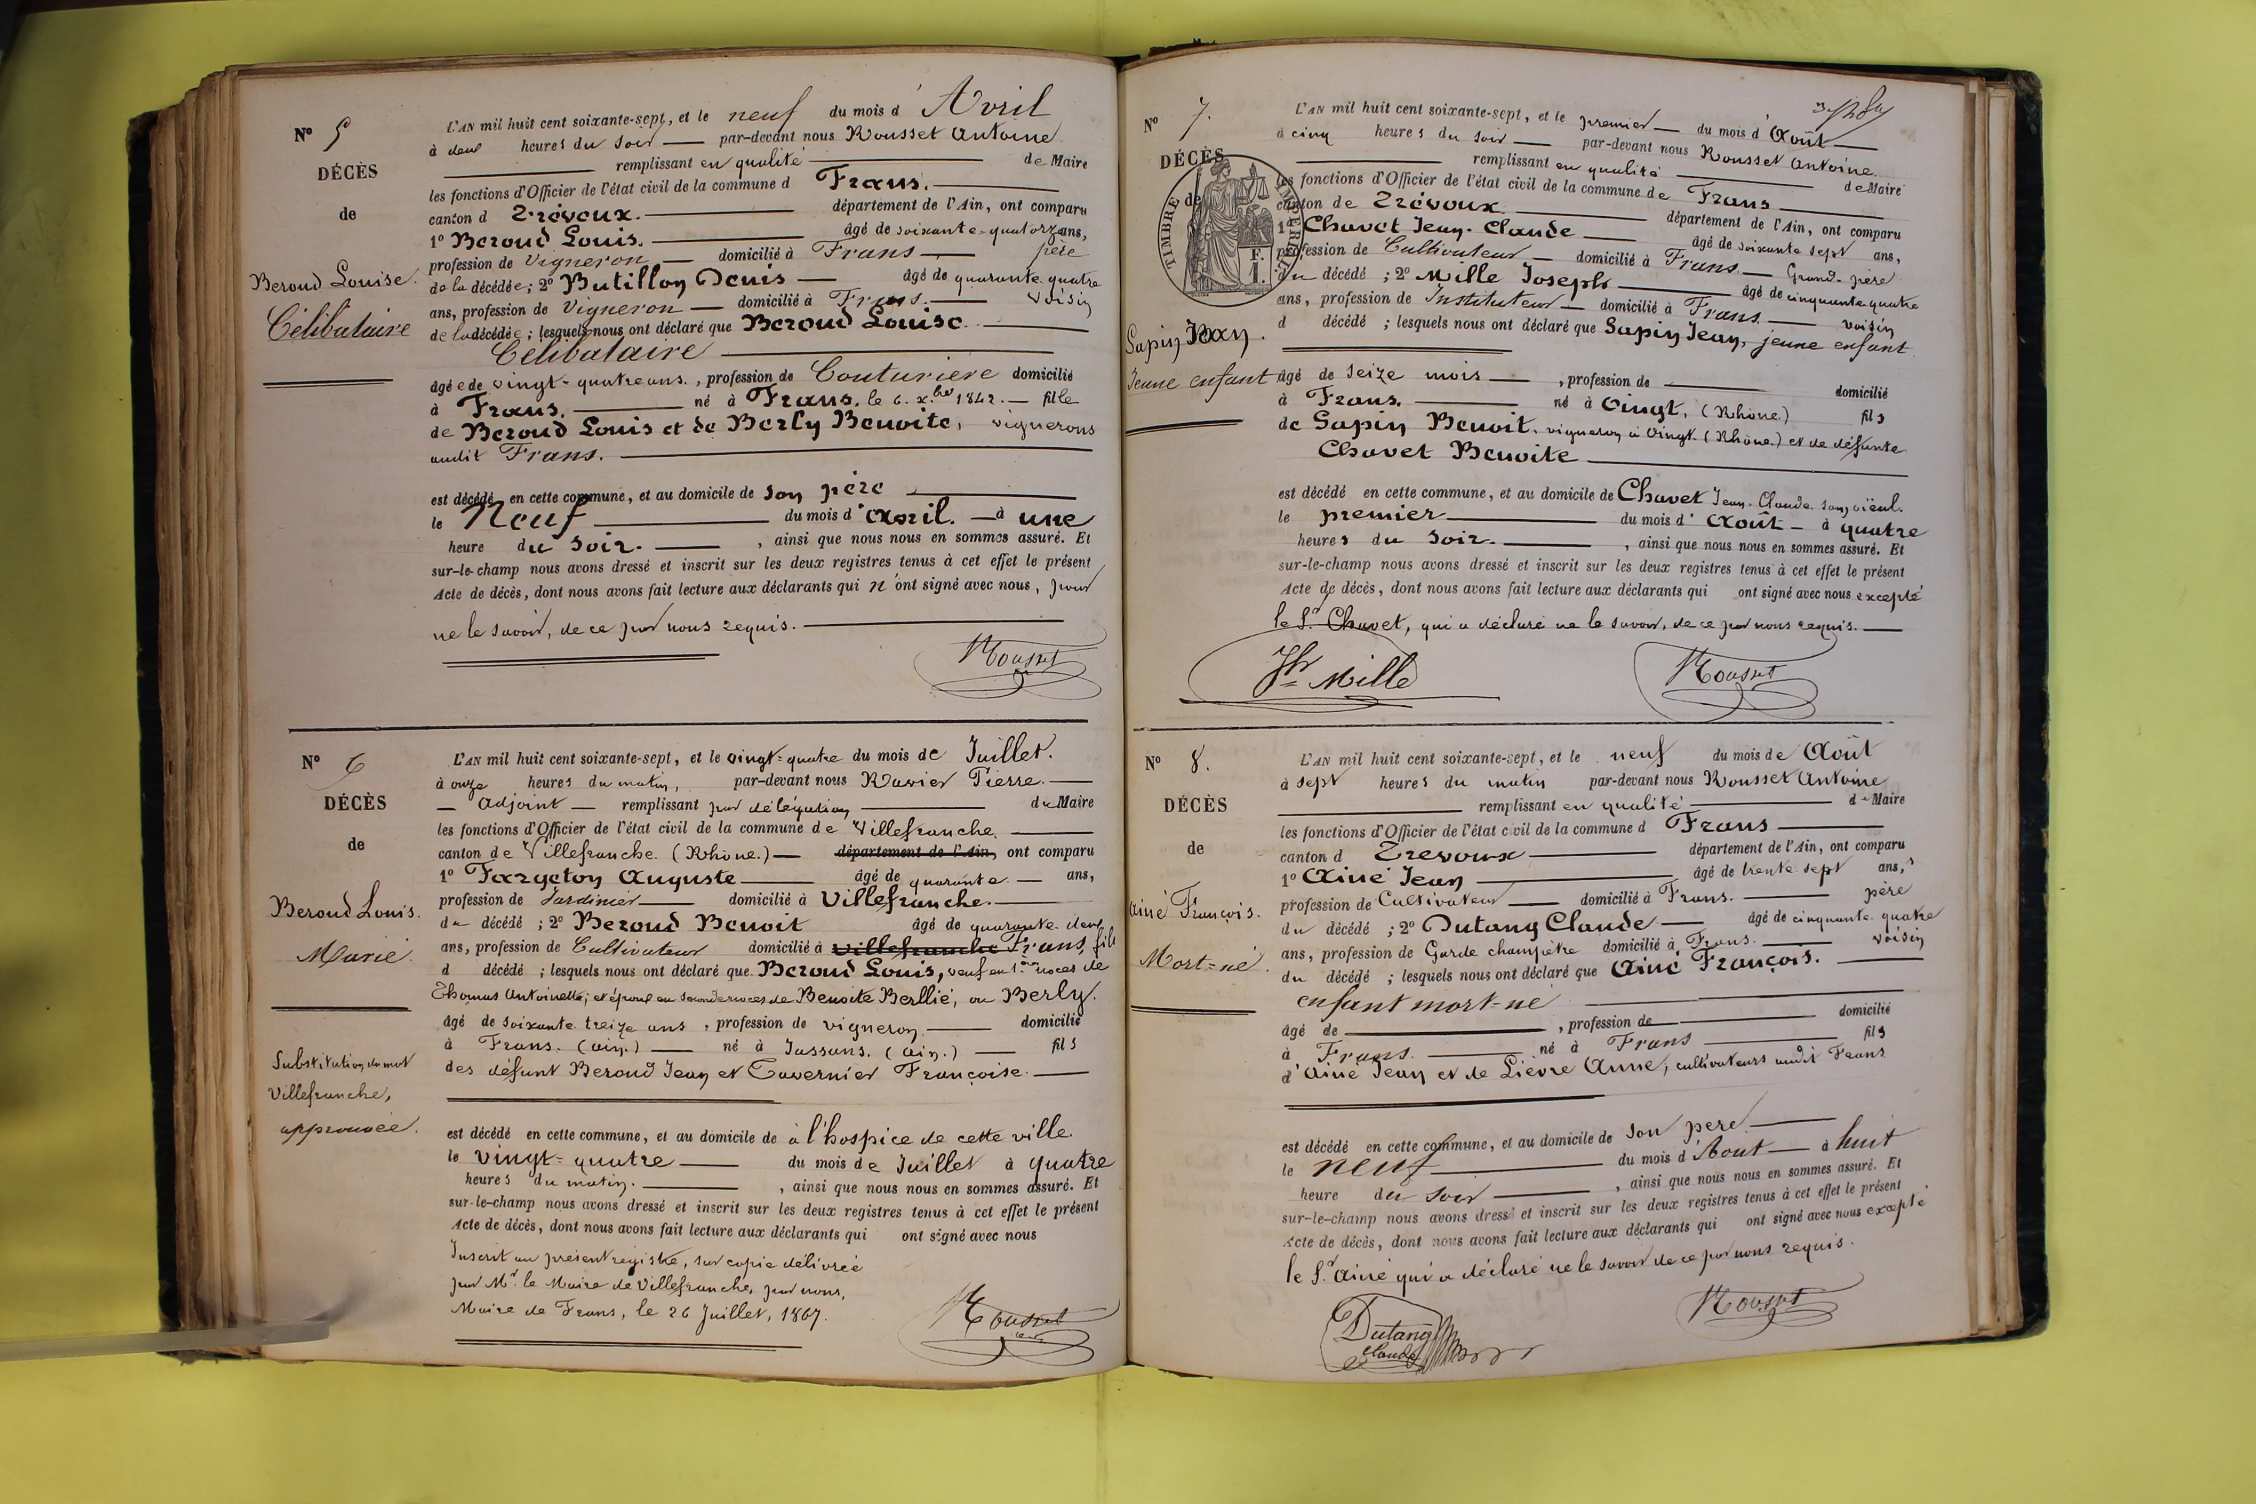 N° 5
DÉCÈS
de
Beroud Louise.
Célibataire
L'AN mil huit cent soixante-sept, et le neuf du mois d'Avril
à deux heures du soir par-devant nous Rousset Antoine
remplissant en qualité de Maire
les fonctions d'Officier de l'état civil de la commune d Frans.
canton d Trévoux. département de l'Ain, ont comparu
1° Beroud Louis. âgé de soixante-quatorze ans,
profession de Vigneron domicilié à Frans père
de la décédée ; 2° Butillon Denis âgé de quarante quatre
ans, profession de Vigneron domicilié à Frans. voisin
de la décédée ; lesquels nous ont déclaré que Beroud Louise
Célibataire
âgée de vingt-quatre ans. , profession de Couturière domicilié
à Frans. né à Frans, le 6. x.bre 1842. fille
de Beroud Louis et de Berly Benoite, vignerons
audit Frans.
est décédé en cette commune, et au domicile de son père
le Neuf du mois d'Avril. à une
heure du soir. , ainsi que nous nous en sommes assuré. Et
sur-le-champ nous avons dressé et inscrit sur les deux registres tenus à cet effet le présent
Acte de décès, dont nous avons fait lecture aux déclarants qui n'ont signé avec nous, pour
ne le savoir, de ce par nous requis.
Rousset
N° 6
DÉCÈS
de
Beroud Louis.
Marié.
Substitution du mot
Villefranche,
approuvée.
L'AN mil huit cent soixante-sept, et le vingt-quatre du mois de Juillet.
à onze heures du matin, par-devant nous Ravier Pierre.
Adjoint remplissant par délégation du Maire
les fonctions d'Officier de l'état civil de la commune de Villefranche.
canton de Villefranche. (Rhône.) département de l'Ain, ont comparu
1° Fargeton Auguste âgé de quarante ans,
profession de Jardinier domicilié à Villefranche.
du décédé ; 2° Beroud Benoit âgé de quarante deux
ans, profession de Cultivateur domicilié à Villefranche Frans, fils
d décédé ; lesquels nous ont déclaré que Beroud Louis, veuf en 1ères noces de
Thomas Antoinette, et époux en secondes noces de Benoite Berllié, ou Berly.
âgé de soixante treize ans , profession de vigneron. domicilié
à Frans. (Ain.) né à Jassans. (Ain.) fils
des défunt Beroud Jean et Tavernier Françoise.
est décédé en cette commune, et au domicile de à l'hospice de cette ville.
le vingt-quatre du mois de Juillet à quatre
heures du matin. , ainsi que nous nous en sommes assuré. Et
sur-le-champ nous avons dressé et inscrit sur les deux registres tenus à cet effet le présent
Acte de décès, dont nous avons fait lecture aux déclarants qui ont signé avec nous
Inscrit au présent registre, sur copie délivrée
par Mr. le Maire de Villefranche, par nous,
Maire de Frans, le 26 Juillet, 1867.
Rousset
N° 7.
DÉCÈS
de
TIMBRE IMPERIAL
F.
1.
Sapin Jean.
Jeune enfant
L'AN mil huit cent soixante-sept, et le premier du mois d'Août
à cinq heures du soir par-devant nous Rousset Antoine
remplissant en qualité de Maire
les fonctions d'Officier de l'état civil de la commune de Frans
canton de Trévoux département de l'Ain, ont comparu
1° Chavet Jean-Claude âgé de soixante sept ans,
profession de Cultivateur domicilié à Frans. Grand-père
du décédé ; 2° Mille Joseph âgé de cinquante quatre
ans, profession de Instituteur domicilié à Frans. voisin
d décédé ; lesquels nous ont déclaré que Sapin Jean, jeune enfant
âgé de seize mois , profession de domicilié
à Frans. né à Oingt, (Rhône) fils
de Sapin Benoit, vigneron à Oingt. (Rhône) et de défunte
Chavet Benoite
est décédé en cette commune, et au domicile de Chavet Jean-Claude son aïeul.
le premier du mois d'Août à quatre
heures du soir. , ainsi que nous nous en sommes assuré. Et
sur-le-champ nous avons dressé et inscrit sur les deux registres tenus à cet effet le présent
Acte de décès, dont nous avons fait lecture aux déclarants qui ont signé avec nous excepté
le Sr. Chavet, qui a déclaré ne le savoir, de ce par nous requis.
Jh Mille
Rousset
N° 8.
DÉCÈS
de
Ainé François.
Mort-né.
L'AN mil huit cent soixante-sept, et le neuf du mois de Août
à sept heures du matin par-devant nous Rousset Antoine
remplissant en qualité de Maire
les fonctions d'Officier de l'état civil de la commune d Frans
canton d Trévoux département de l'Ain, ont comparu
1° Ainé Jean âgé de trente sept ans,
profession de Cultivateur domicilié à Frans. père
du décédé ; 2° Dutang Claude âgé de cinquante quatre
ans, profession de Garde champêtre domicilié à Frans. voisin
du décédé ; lesquels nous ont déclaré que Ainé François.
enfant mort-né
âgé de , profession de domicilié
à Frans. né à Frans fils
d'Ainé Jean et de Lièvre Anne, cultivateurs audit Frans
est décédé en cette commune, et au domicile de son père.
le neuf du mois d'Aout à huit
heure du soir , ainsi que nous nous en sommes assuré. Et
sur-le-champ nous avons dressé et inscrit sur les deux registres tenus à cet effet le présent
Acte de décès, dont nous avons fait lecture aux déclarants qui ont signé avec nous excepté
le Sr. Ainé qui a déclaré ne le savoir de ce par nous requis.
Dutang
Claude
Rousset